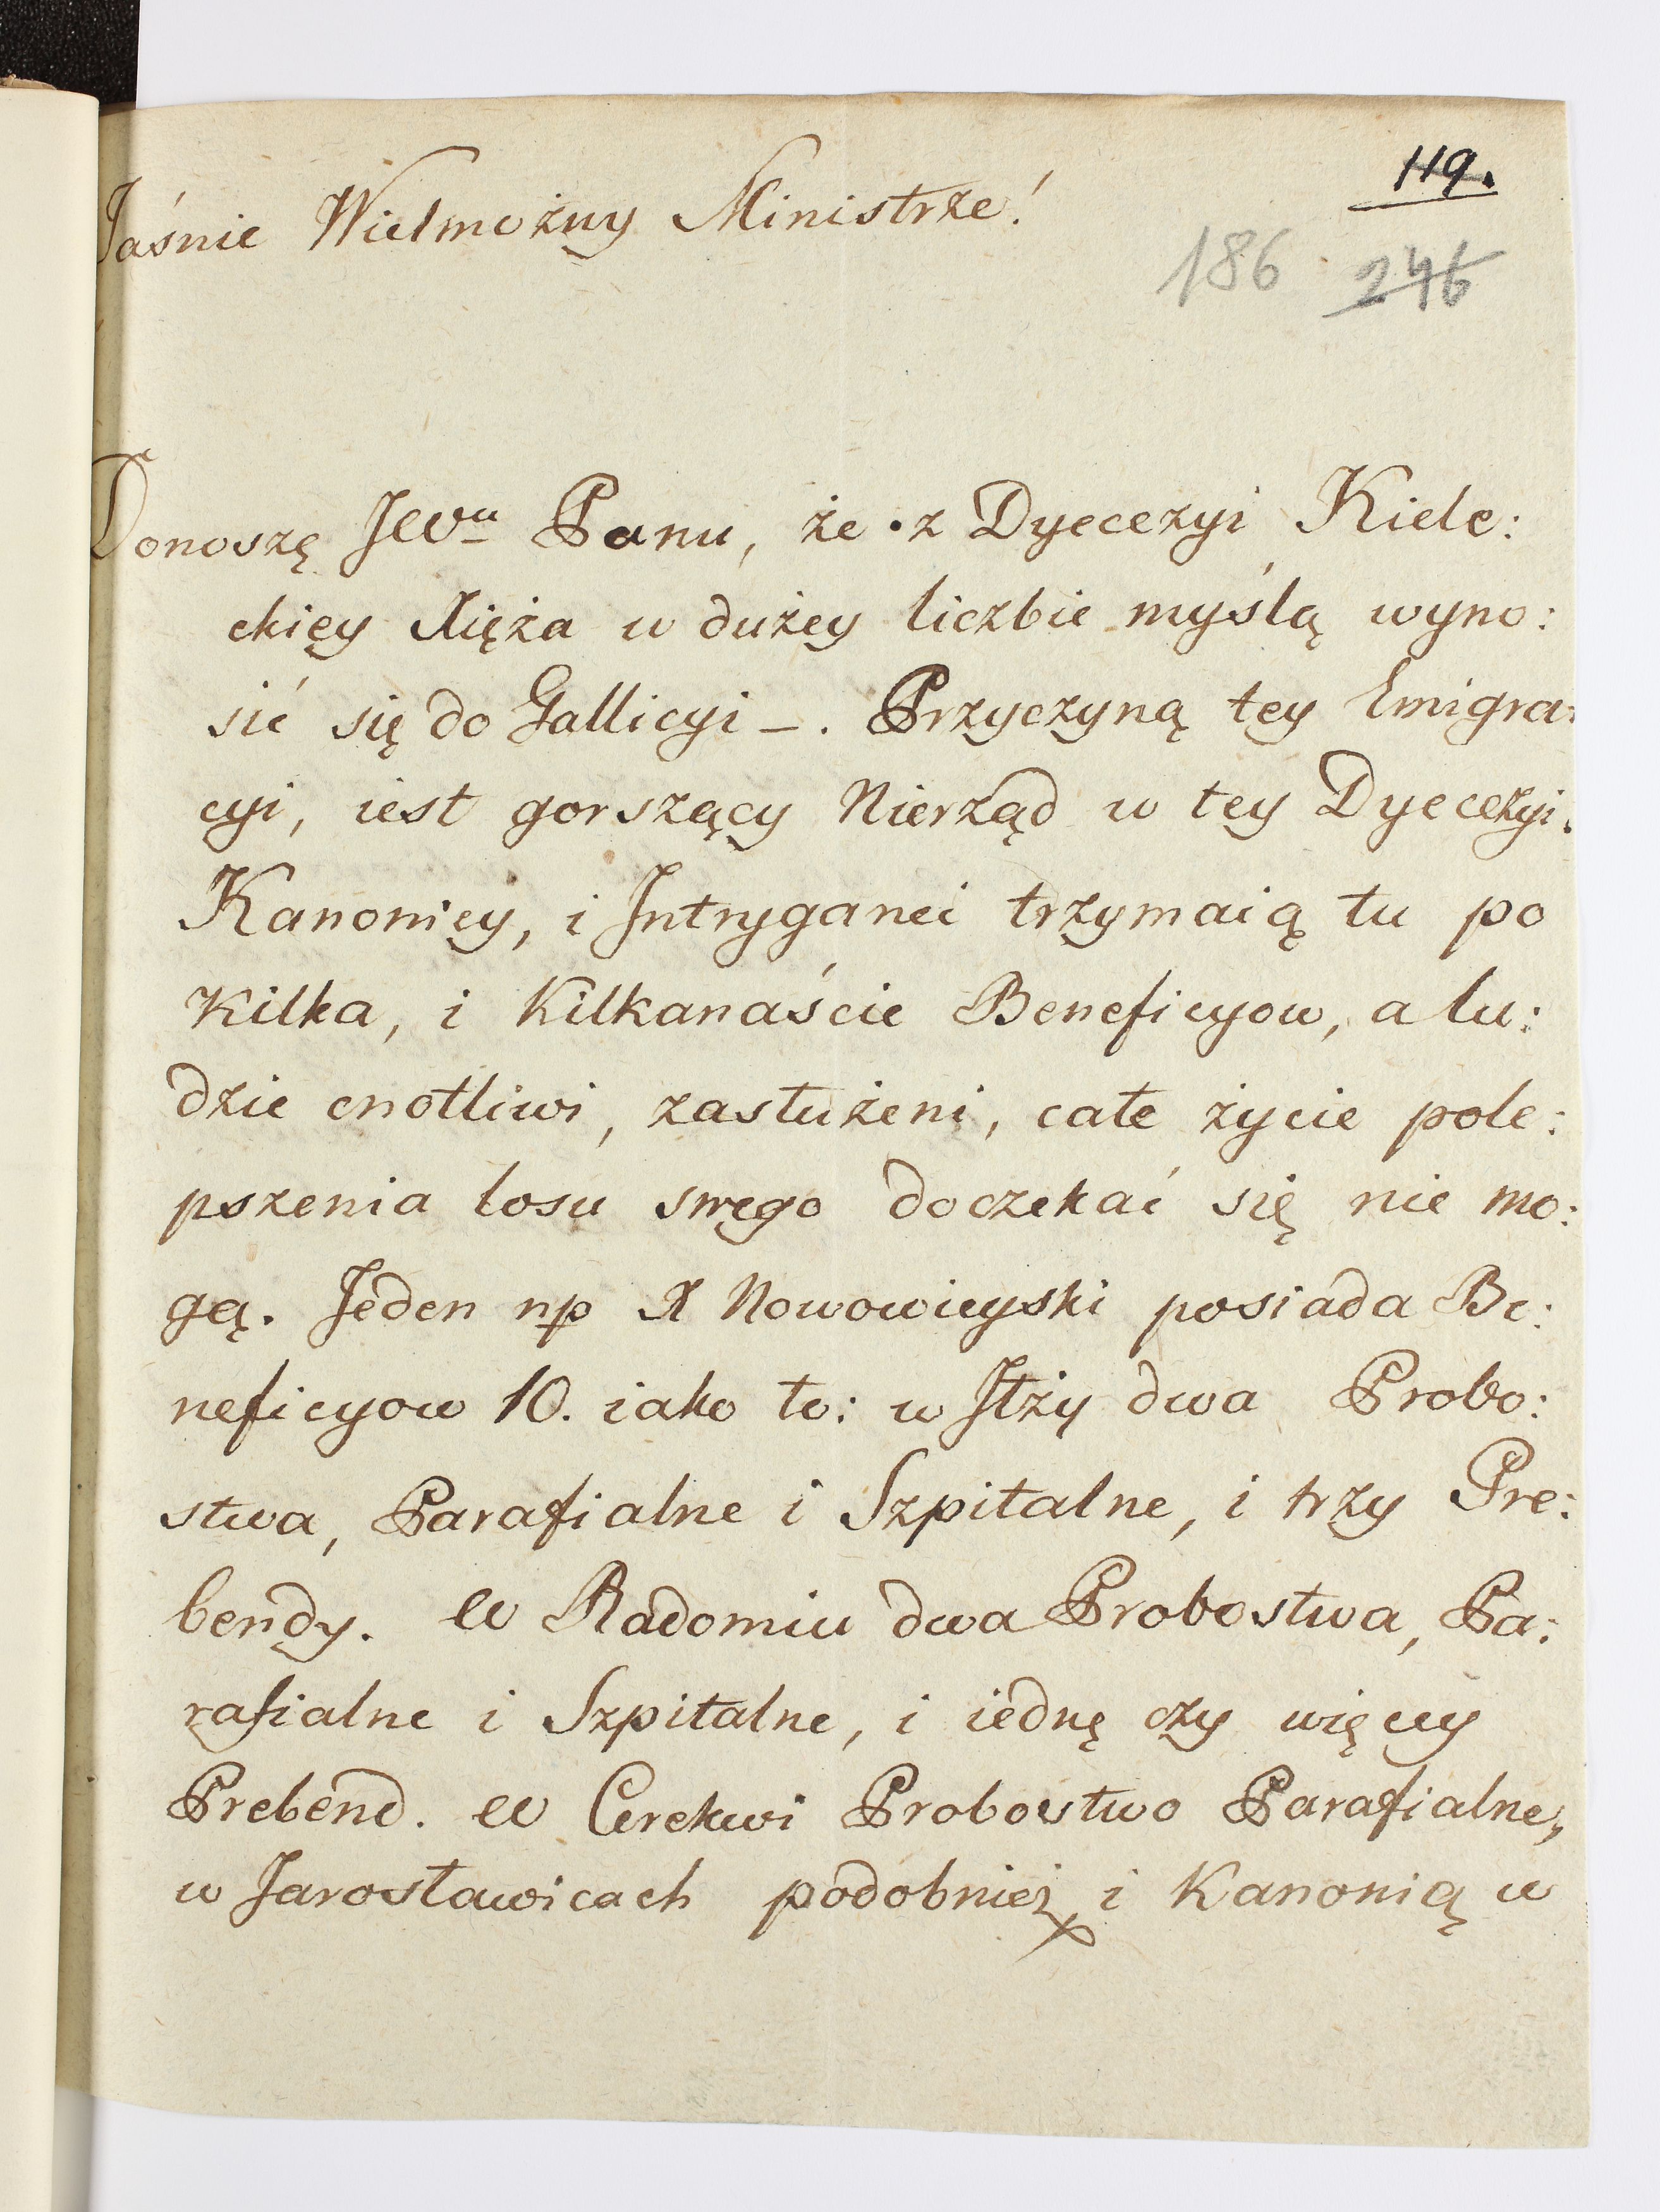 119.
Jaśnie Wielmożny Ministrze!
186 246
Donoszę JWu Panu, że z Dyecezyi Kiele:
ckiey Xięża w dużey liczbie myślą wyno:
sić się do Gallicyi -. Przyczyną tey Emigra:
cyi, iest gorszący Nierząd w tey Dyecezyi.
Kanonicy, i Intryganci trzymaią tu po
Kilka, i Kilkanaście Beneficyow, a lu:
dzie cnotliwi, zasłużeni, całe życie pole:
pszenia losu swego doczekać się nie mo:
gą. Jeden np X Nowowieyski posiada Be:
neficyow 10. iako to: w Iłży dwa Probo:
stwa, Parafialne i Szpitalne, i trzy Pre:
bendy. W Radomiu dwa Probostwa, Pa:
rafialne i Szpitalne, i iednę czy więcey
Prebend. W Cerekwi Probostwo Parafialne,
w Jarosławicach podobnież i Kanonią w